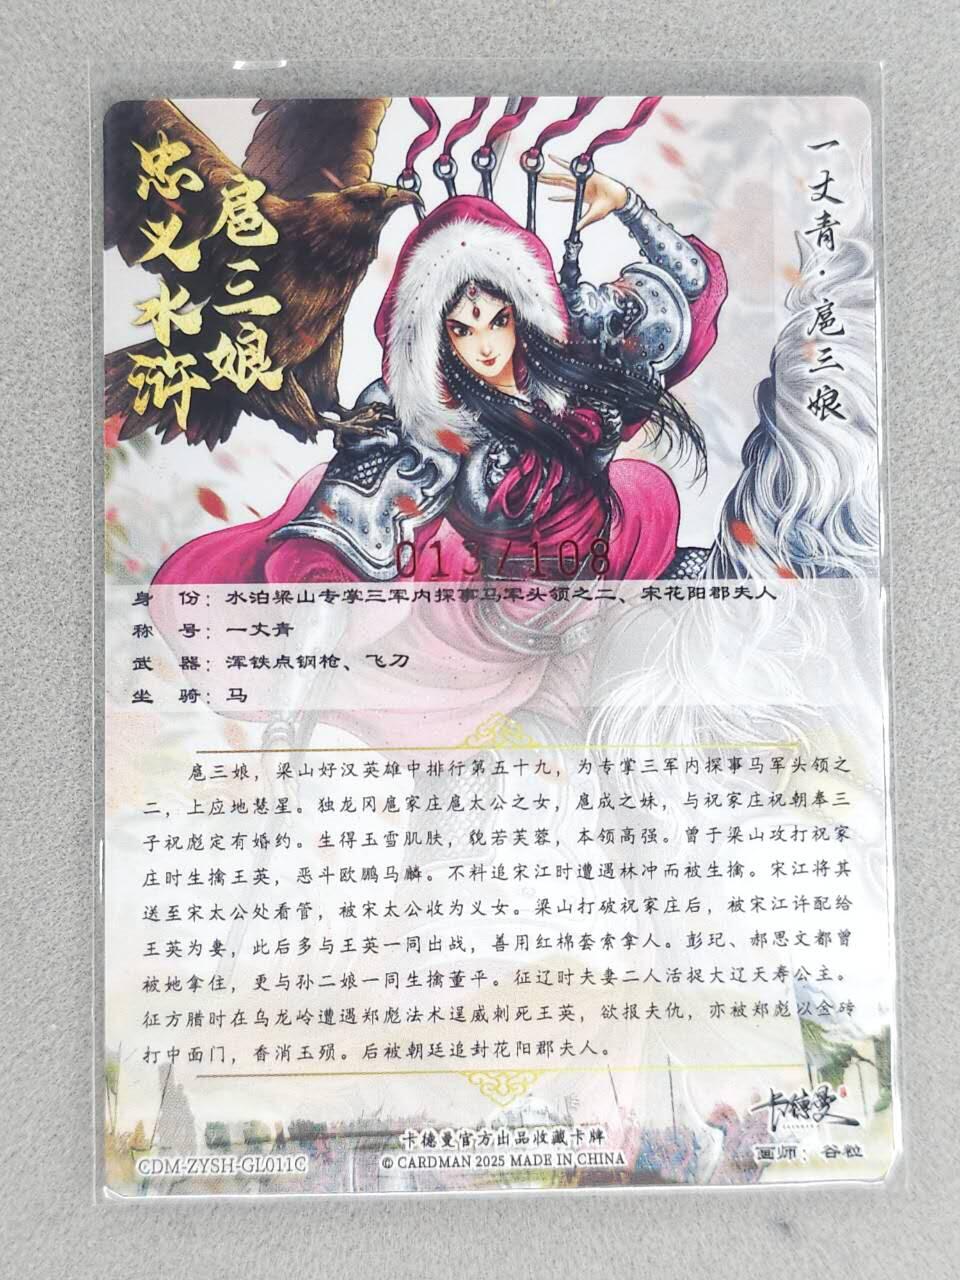 忠义水浒
扈三娘
一丈青·扈三娘
013/108
身 份：水泊梁山专掌三军内探事马军头领之二、宋花阳郡夫人
称 号：一丈青
武 器：浑铁点钢枪、飞刀
坐 骑：马
扈三娘，梁山好汉英雄中排行第五十九，为专掌三军内探事马军头领之
二，上应地慧星。独龙冈扈家庄扈太公之女，扈成之妹，与祝家庄祝朝奉三
子祝彪定有婚约。生得玉雪肌肤，貌若芙蓉，本领高强。曾于梁山攻打祝家
庄时生擒王英，恶斗欧鹏马麟。不料追宋江时遭遇林冲而被生擒。宋江将其
送至宋太公处看管，被宋太公收为义女。梁山打破祝家庄后，被宋江许配给
王英为妻，此后多与王英一同出战，善用红棉套索拿人。彭玘、郝思文都曾
被她拿住，更与孙二娘一同生擒董平。征辽时夫妻二人活捉大辽天寿公主。
征方腊时在乌龙岭遭遇郑彪法术逞威刺死王英，欲报夫仇，亦被郑彪以金砖
打中面门，香消玉殒。后被朝廷追封花阳郡夫人。
卡德曼
卡德曼官方出品收藏卡牌
画师：谷粒
CDM-ZYSH-GL011C
© CARDMAN 2025 MADE IN CHINA